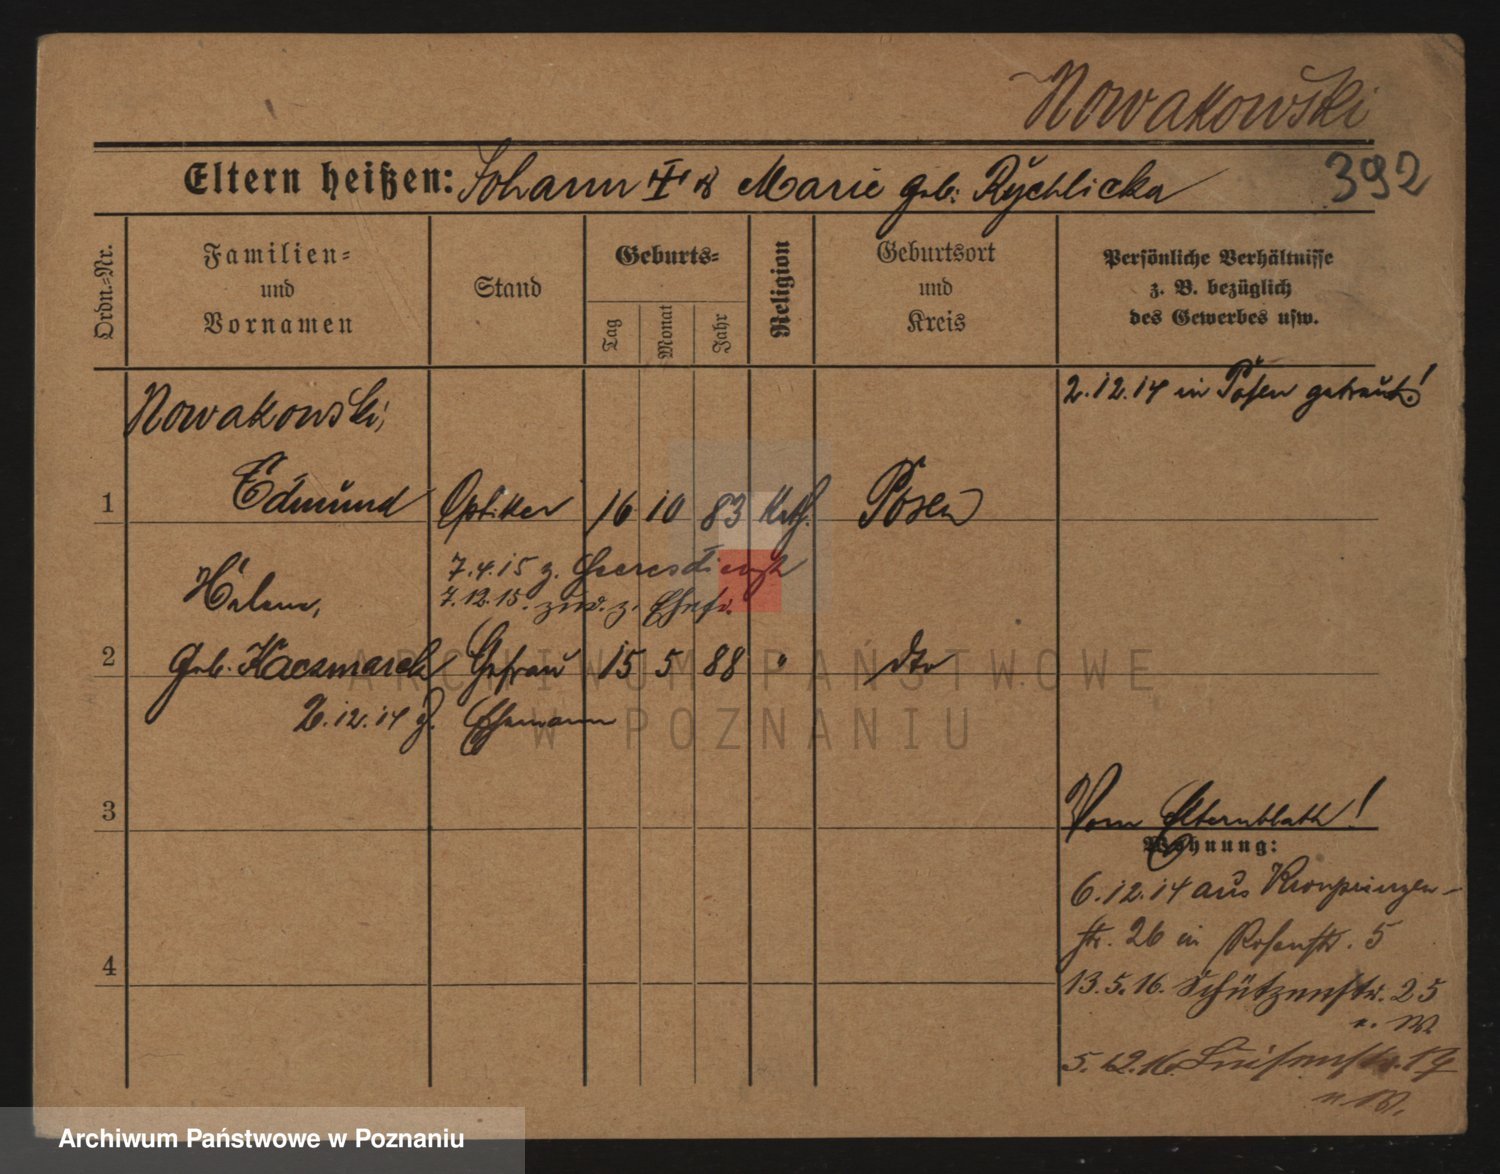 Nowakowski
392
Eltern heißen: Johann † & Marie geb. Rychlicka
Ordn.-Nr.
Familien-
und
Vornamen
Stand
Geburts-
Tag
Monat
Jahr
Religion
Geburtsort
und
Kreis
Persönliche Verhältnisse
z. B. bezüglich
des Gewerbes usw.
2.12.14 in Posen getraut!
Nowakowski,
1 Edmund Optiker 16 10 83 Kath. Posen
7.4.15 z. Heeresdienst
7.12.15. zur. z. Ehefr.
Helene,
2 geb. Kaczmarek Ehefrau 15 5 88 " dto
2.12.14 z. Ehemann
3
Vom Elternblatt!
Wohnung:
6.12.14 aus Kronprinzen-
str. 26 in Rosenstr. 5
4
13.5.16. Schützenstr. 25
n. W.
5.12.16. Luisenstr. 19
n. W.
ARCHIWUM PAŃSTWOWE
W POZNANIU
Archiwum Państwowe w Poznaniu